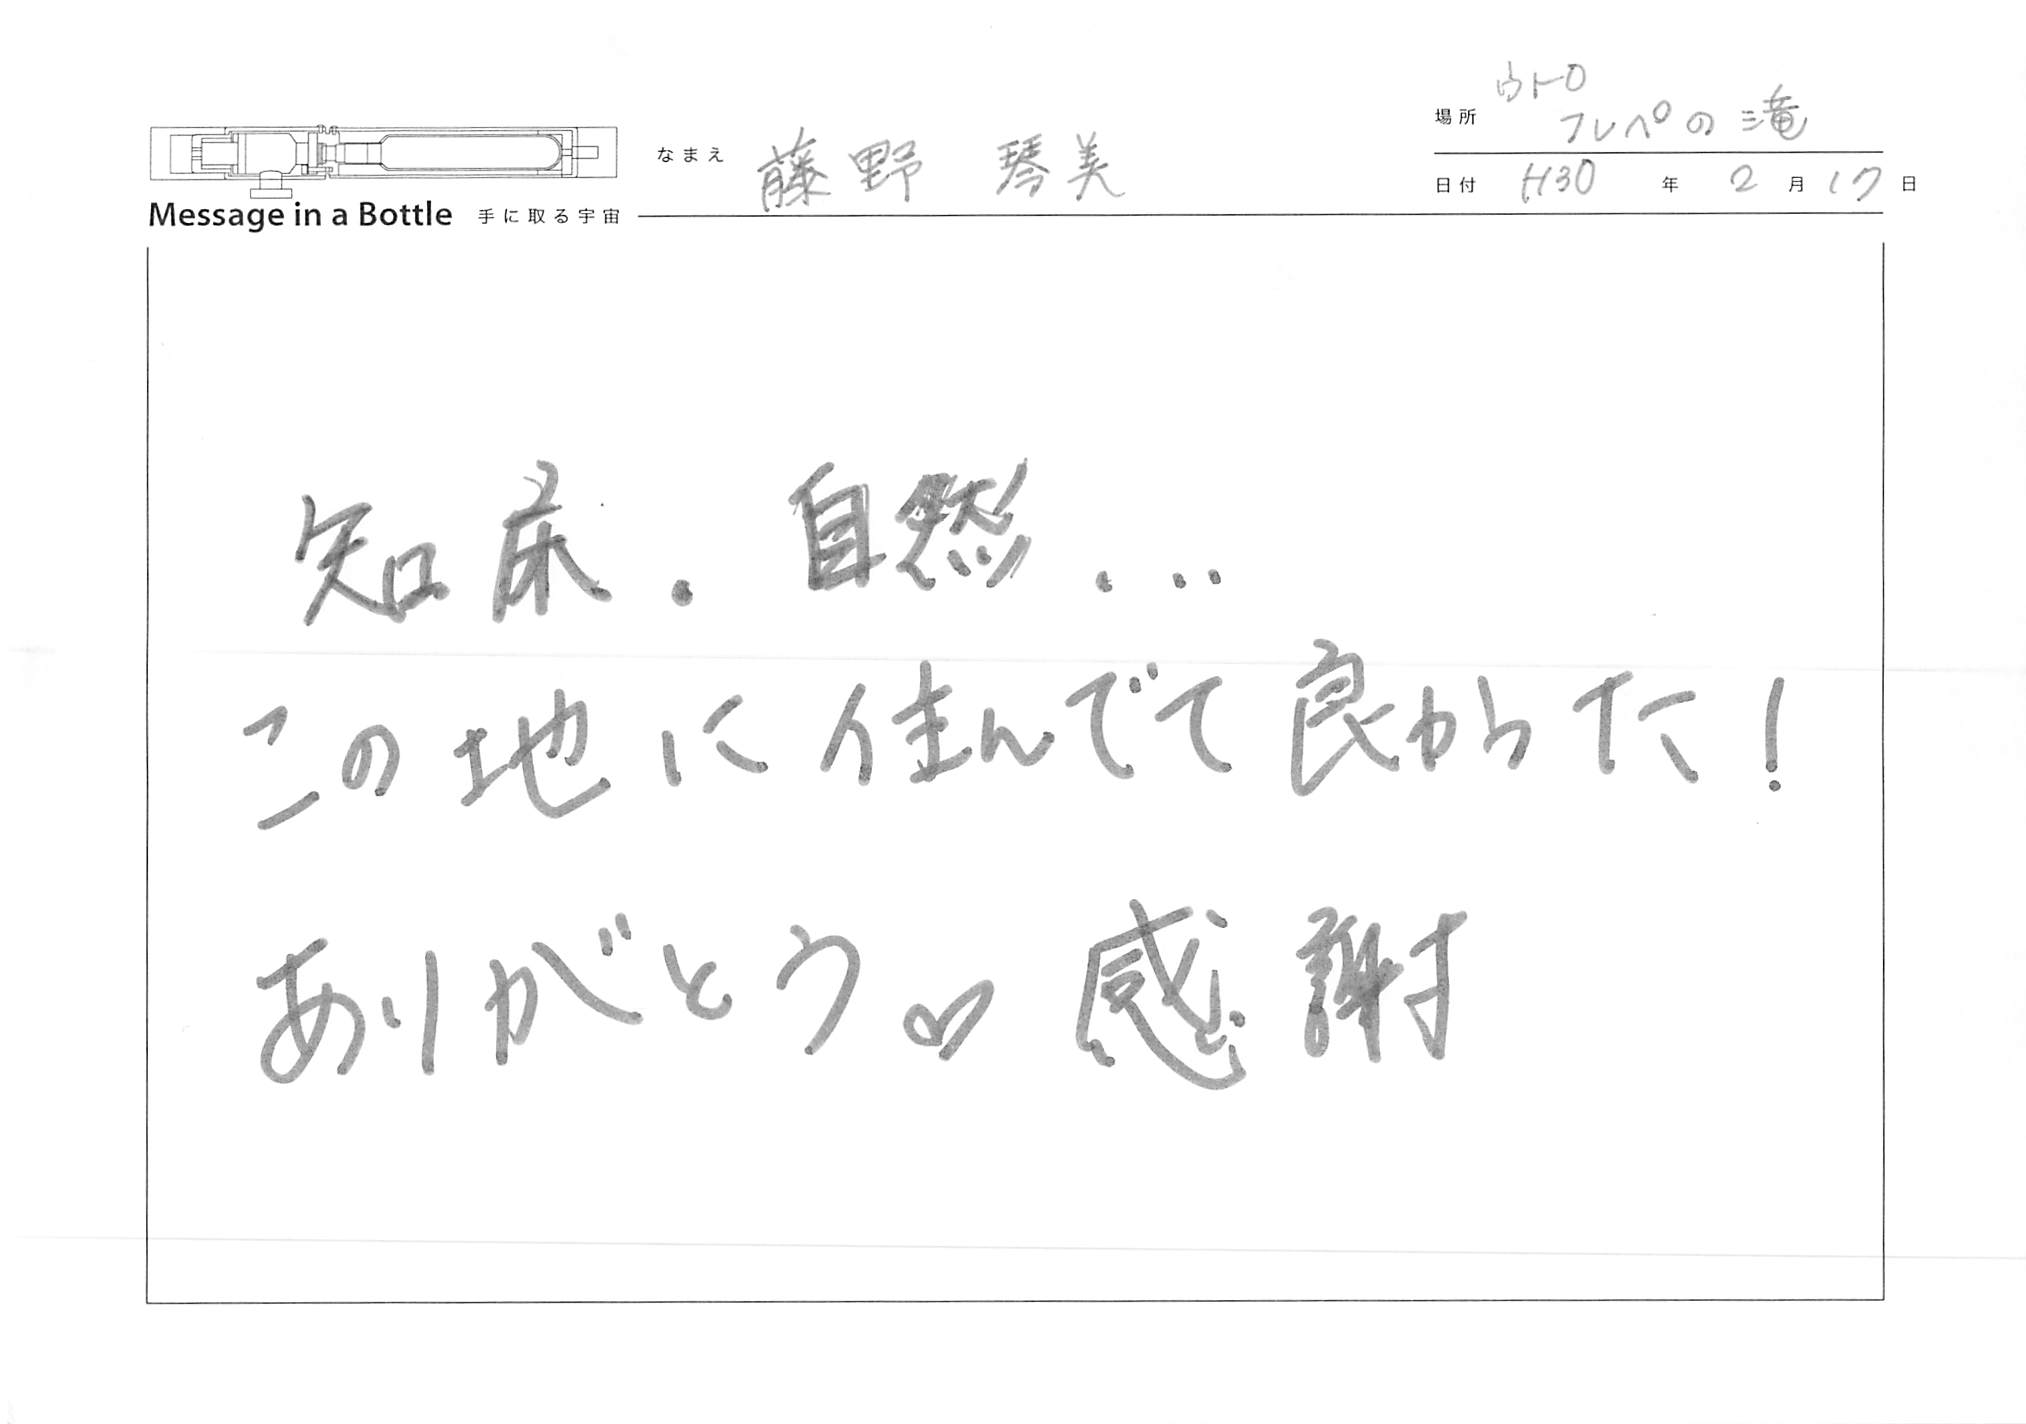 場所 ウトロ
フレペの滝
なまえ 藤野 琴美
日付 H30 年 2 月 17 日
Message in a Bottle 手に取る宇宙
知床.自然...
この地に住んでて良かった!
ありがとう♡感謝